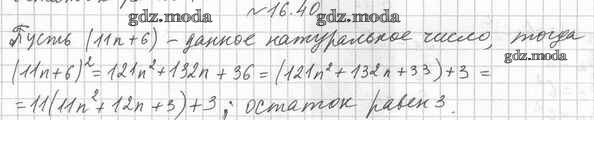 №16.40
gdz.moda
gdz.moda
Пусть (11n+6) - данное натуральное число, тогда
gdz.moda
(11n+6)² = 121n² + 132n + 36 = (121n² + 132n + 33) + 3 =
= 11(11n² + 12n + 3) + 3; остаток равен 3.
gdz.moda